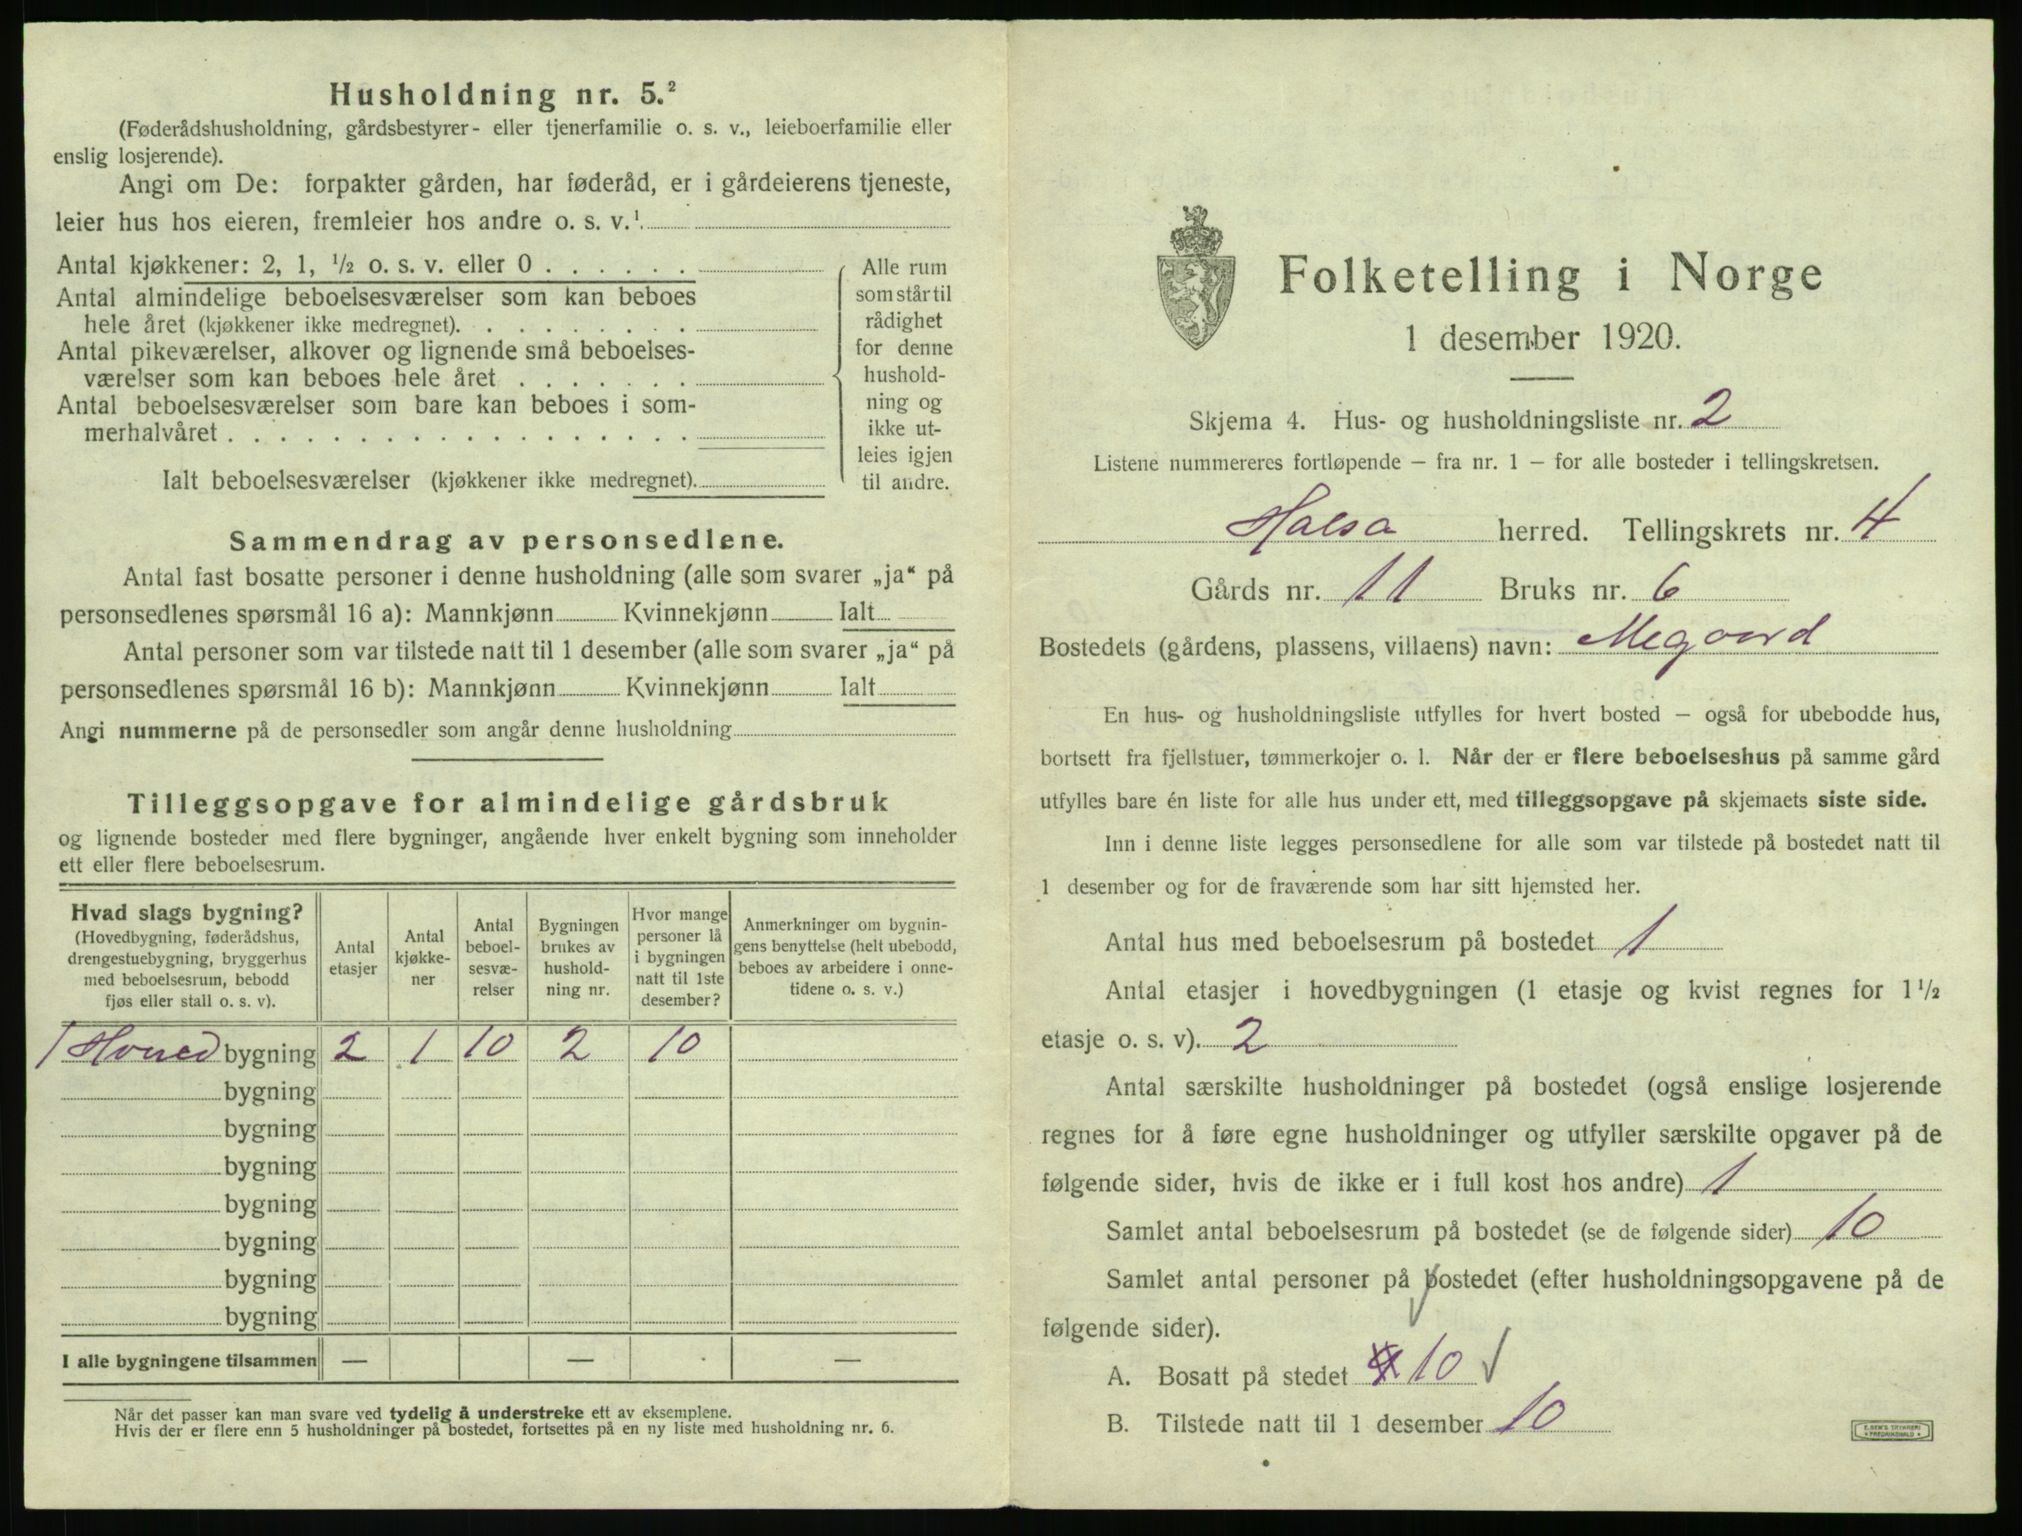 Husholdning nr. 5.²
(Føderådshusholdning, gårdsbestyrer- eller tjenerfamilie o. s. v., leieboerfamilie eller
enslig losjerende).
Angi om De: forpakter gården, har føderåd, er i gårdeierens tjeneste,
leier hus hos eieren, fremleier hos andre o. s. v.¹
Antal kjøkkener: 2, 1, ½ o. s. v. eller 0 . . . . . .
Antal almindelige beboelsesværelser som kan beboes
hele året (kjøkkener ikke medregnet). . . . . . . . .
Antal pikeværelser, alkover og lignende små beboelses-
værelser som kan beboes hele året . . . . . . .
Antal beboelsesværelser som bare kan beboes i som-
merhalvåret . . . . . . . . . . . . . . . . . .
Ialt beboelsesværelser (kjøkkener ikke medregnet).
Alle rum
som står til
rådighet
for denne
hushold-
ning og
ikke ut-
leies igjen
til andre.
Sammendrag av personsedlene.
Antal fast bosatte personer i denne husholdning (alle som svarer „ja“ på
personsedlenes spørsmål 16 a): Mannkjønn Kvinnekjønn Ialt
Antal personer som var tilstede natt til 1 desember (alle som svarer „ja“ på
personsedlenes spørsmål 16 b): Mannkjønn Kvinnekjønn Ialt
Angi nummerne på de personsedler som angår denne husholdning
Tilleggsopgave for almindelige gårdsbruk
og lignende bosteder med flere bygninger, angående hver enkelt bygning som inneholder
ett eller flere beboelsesrum.
Hvad slags bygning?
(Hovedbygning, føderådshus,
drengestuebygning, bryggerhus
med beboelsesrum, bebodd
fjøs eller stall o. s. v).
Antal
etasjer
Antal
kjøkke-
ner
Antal
beboel-
sesvæ-
relser
Bygningen
brukes av
hushold-
ning nr.
Hvor mange
personer lå
i bygningen
natt til 1ste
desember?
Anmerkninger om bygnin-
gens benyttelse (helt ubebodd,
beboes av arbeidere i onne-
tidene o. s. v.)
1 Hoved bygning 2 1 10 2 10
bygning
bygning
bygning
bygning
bygning
bygning
bygning
I alle bygningene tilsammen — — —
Når det passer kan man svare ved tydelig å understreke ett av eksemplene.
Hvis der er flere enn 5 husholdninger på bostedet, fortsettes på en ny liste med husholdning nr. 6.
Folketelling i Norge
1 desember 1920.
Skjema 4. Hus- og husholdningsliste nr. 2
Listene nummereres fortløpende – fra nr. 1 – for alle bosteder i tellingskretsen.
Halsa herred. Tellingskrets nr. 4
Gårds nr. 11 Bruks nr. 6
Bostedets (gårdens, plassens, villaens) navn: Megaard
En hus- og husholdningsliste utfylles for hvert bosted – også for ubebodde hus,
bortsett fra fjellstuer, tømmerkojer o. l. Når der er flere beboelseshus på samme gård
utfylles bare én liste for alle hus under ett, med tilleggsopgave på skjemaets siste side.
Inn i denne liste legges personsedlene for alle som var tilstede på bostedet natt til
1 desember og for de fraværende som har sitt hjemsted her.
Antal hus med beboelsesrum på bostedet 1
Antal etasjer i hovedbygningen (1 etasje og kvist regnes for 1½
etasje o. s. v). 2
Antal særskilte husholdninger på bostedet (også enslige losjerende
regnes for å føre egne husholdninger og utfyller særskilte opgaver på de
følgende sider, hvis de ikke er i full kost hos andre) 1
Samlet antal beboelsesrum på bostedet (se de følgende sider) 10
Samlet antal personer på bostedet (efter husholdningsopgavene på de
følgende sider).
A. Bosatt på stedet 10 √
B. Tilstede natt til 1 desember 10